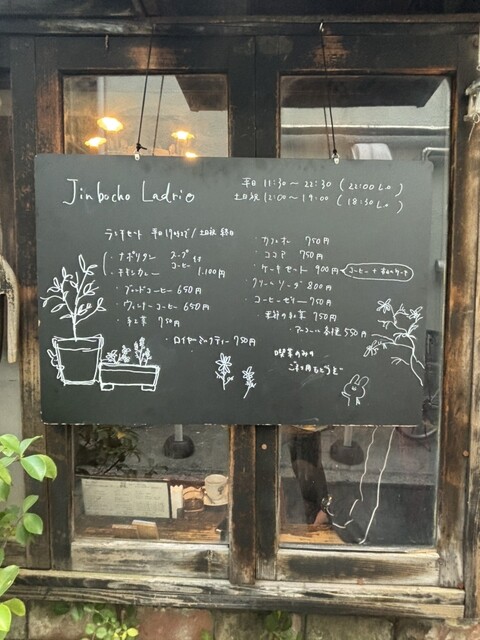 Jinbocho Ladrio
平日 11:30〜22:30 (22:00 L.o)
土日祝 12:00〜19:00 (18:30 L.o)
ランチセット 平日 / 土日祝 終日
・ナポリタン スープ 付
・チキンカレー コーヒー 1,100円
・ブレンドコーヒー 650円
・ウィンナーコーヒー 650円
・紅茶 750円
・ロイヤルミルクティー 750円
・カフェオレ 750円
・ココア 750円
・ケーキセット 900円 コーヒー +
・クリームソーダ 800円
・コーヒーゼリー 750円
・紅茶 750円
・アルコール各種 550円
喫茶のみの
ご利用もどうぞ